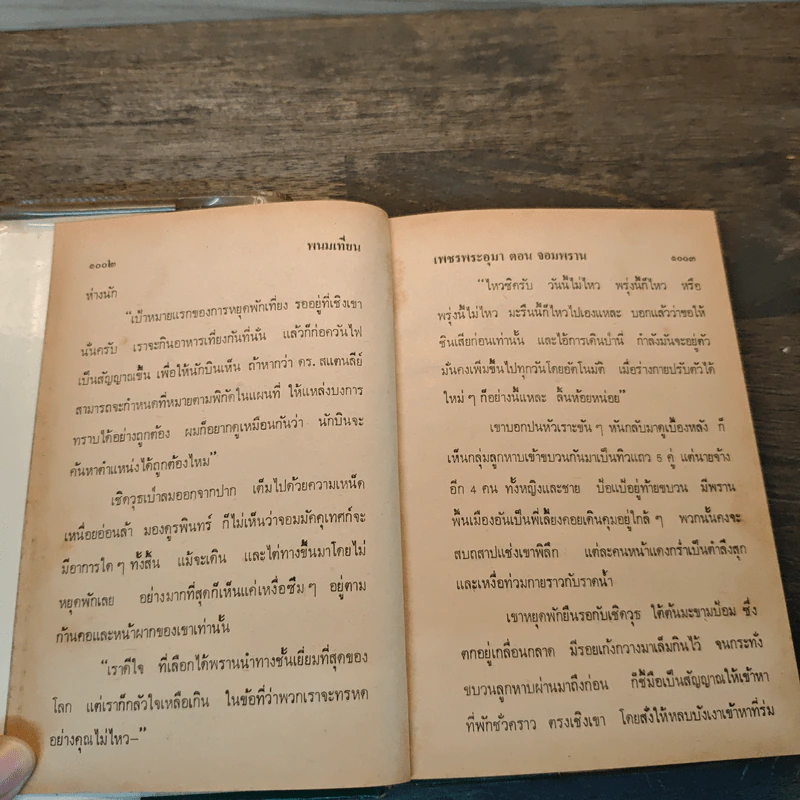 ๑๐๐๒ พนมเทียน
ห่างนัก
"เป้าหมายแรกของการหยุดพักเที่ยง รออยู่ที่เชิงเขา
นั่นครับ เราจะกินอาหารเที่ยงกันที่นั่น แล้วก็ก่อควันไฟ
เป็นสัญญาณขึ้น เพื่อให้นักบินเห็น ถ้าหากว่า ดร. สแตนลีย์
สามารถจะกำหนดที่หมายตามพิกัดในแผนที่ ให้แหล่งบงการ
ทราบได้อย่างถูกต้อง ผมก็อยากดูเหมือนกันว่า นักบินจะ
ค้นหาตำแหน่งได้ถูกต้องไหม"
เชิดวุธเป่าลมออกจากปาก เต็มไปด้วยความเหน็ด
เหนื่อยอ่อนล้า มองดูรพินทร์ ก็ไม่เห็นว่าจอมมัคคุเทศก์จะ
มีอาการใด ๆ ทั้งสิ้น แม้จะเดิน และไต่ทางขึ้นมาโดยไม่
หยุดพักเลย อย่างมากที่สุดก็เห็นแค่เหงื่อซึม ๆ อยู่ตาม
ก้านคอและหน้าผากของเขาเท่านั้น
"เราดีใจ ที่เลือกได้พรานนำทางชั้นเยี่ยมที่สุดของ
โลก แต่เราก็กลัวใจเหลือเกิน ในข้อที่ว่าพวกเราจะทรหด
อย่างคุณไม่ไหว–"
เพชรพระอุมา ตอน จอมพราน ๑๐๐๓
"ไหวซิครับ วันนี้ไม่ไหว พรุ่งนี้ก็ไหว หรือ
พรุ่งนี้ไม่ไหว มะรืนนี้ก็ไหวไปเองแหละ บอกแล้วว่าขอให้
ชินเสียก่อนเท่านั้น และไอ้การเดินป่านี่ กำลังมันจะอยู่ตัว
มั่นคงเพิ่มขึ้นไปทุกวันโดยอัตโนมัติ เมื่อร่างกายปรับตัวได้
ใหม่ ๆ ก็อย่างนี้แหละ ลิ้นห้อยหน่อย"
เขาบอกปนหัวเราะขัน ๆ หันกลับมาดูเบื้องหลัง ก็
เห็นกลุ่มลูกหาบเข้าขบวนกันมาเป็นทิวแถว 5 คู่ แต่นายจ้าง
อีก 4 คน ทั้งหญิงและชาย ป้อแป้อยู่ท้ายขบวน มีพราน
พื้นเมืองอันเป็นพี่เลี้ยงคอยเดินคุมอยู่ใกล้ ๆ พวกนั้นคงจะ
สบถสาปแช่งเขาพิลึก แต่ละคนหน้าแดงก่ำเป็นตำลึงสุก
และเหงื่อท่วมกายราวกับราดน้ำ
เขาหยุดพักยืนรอกับเชิดวุธ ใต้ต้นมะขามป้อม ซึ่ง
ตกอยู่เกลื่อนกลาด มีรอยเก้งกวางมาเล็มกินไว้ จนกระทั่ง
ขบวนลูกหาบผ่านมาถึงก่อน ก็ชี้มือเป็นสัญญาณให้เข้าหา
ที่พักชั่วคราว ตรงเชิงเขา โดยสั่งให้หลบบังเงาเข้าหาที่ร่ม